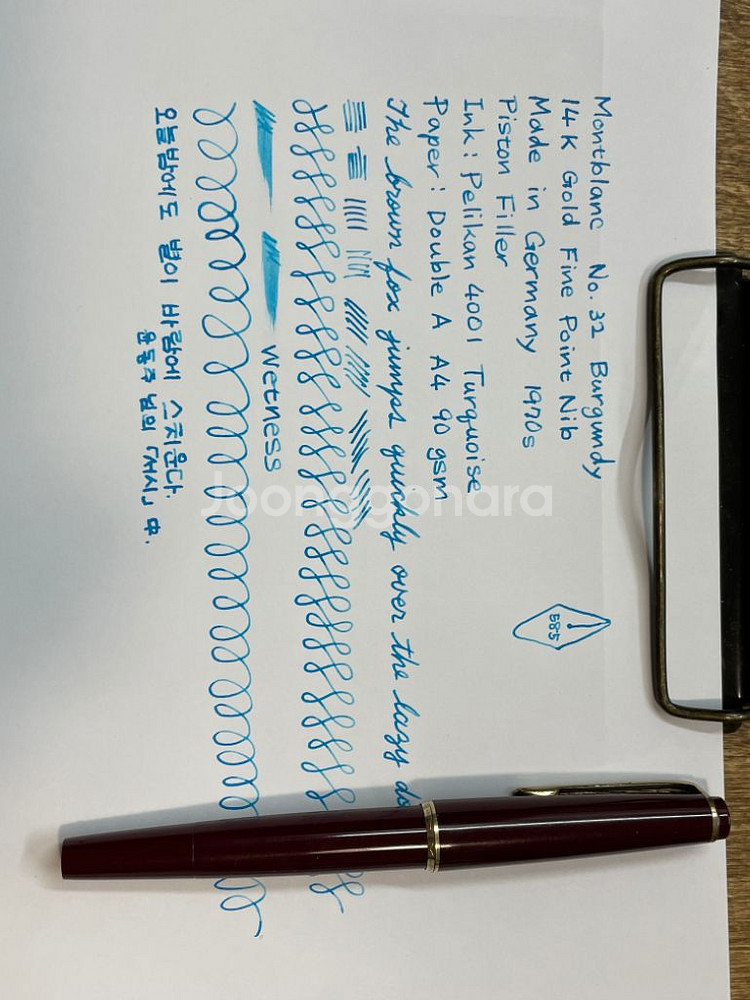 Montblanc No. 32 Burgundy
14K Gold Fine Point Nib
Made in Germany 1970s
Piston Filler
Ink : Pelikan 4001 Turquoise
Paper : Double A A4 90 gsm
585
The brown fox jumps quickly over the lazy do
Wetness
오늘밤에도 별이 바람에 스치운다.
윤동주 님의 「서시」 中.
Joonggonara